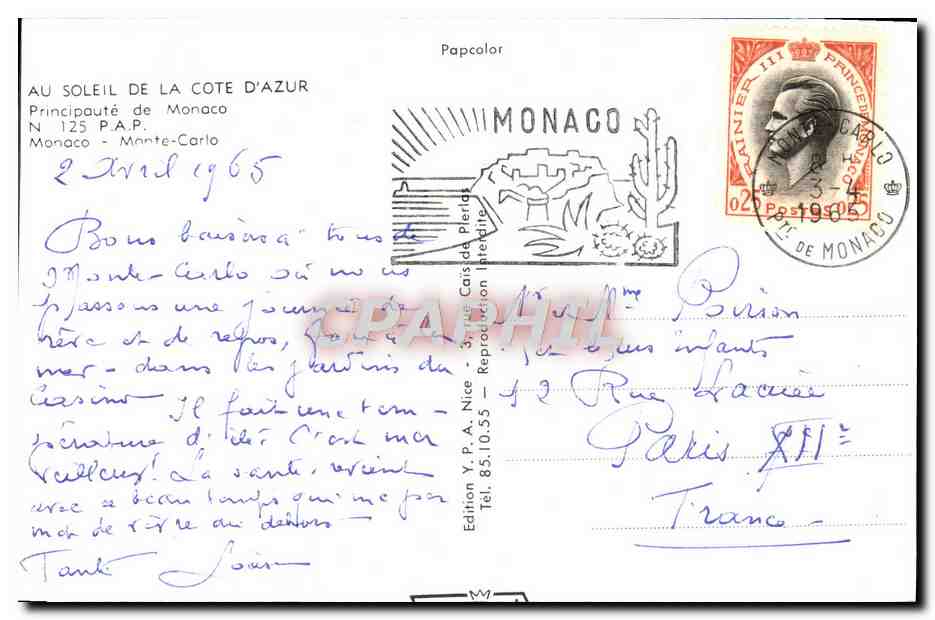 Papcolor
AU SOLEIL DE LA COTE D'AZUR
Principauté de Monaco
N 125 P.A.P.
Monaco - Monte-Carlo
2 Avril 1965
Bons baisers à tous de
Monte-Carlo où nous
passons une journée de
rêve et de repos, face à la
mer - dans les jardins du
Casino Il fait une tem-
pérature d'été! C'est mer
veilleux! La santé revient
avec ce beau temps qui me per
met de vivre au dehors
Tante
MONACO
RAINIER III PRINCE DE MONACO
0,25 POSTES 0,25
MONTE-CARLO
3-4
1965
Pté DE MONACO
Edition Y. P. A. Nice - 3, rue Cais de Pierlas
Tél. 85.10.55 - Reproduction Interdite
CPAPHIL
Mr et Mme Poirion
et leurs enfants
12 Rue Lacuée
Paris XIIe
France